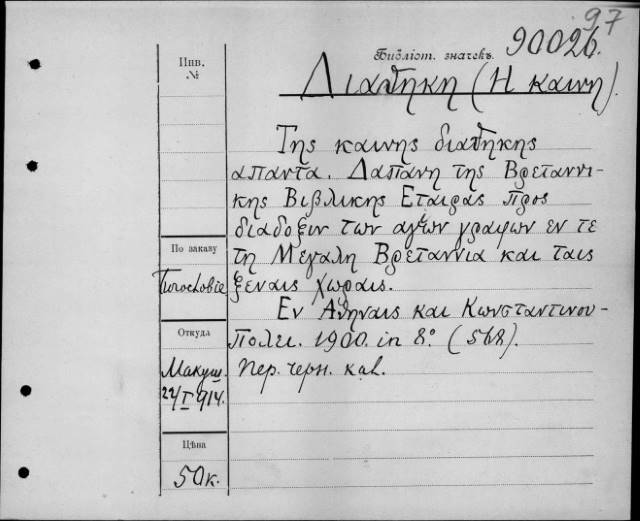 97
Библіот. значекъ. 90026.
Инв.
№
Διαθηκη (Η καινη).
Της καινης διαθηκης
απαντα. Δαπανη της Βρεταννι-
κης Βιβλικης Εταιρας προς
διαδοξιν των αγιων γραφων εν τε
τη Μεγαλη Βρεταννια και ταις
ξεναις χωραις.
Εν Αθηναις και Κωνσταντινου-
πολει. 1900. in 8° (568).
Пер. черн. кал.
По заказу
Откуда
Макуш.
22/I 914.
Цѣна
50 к.